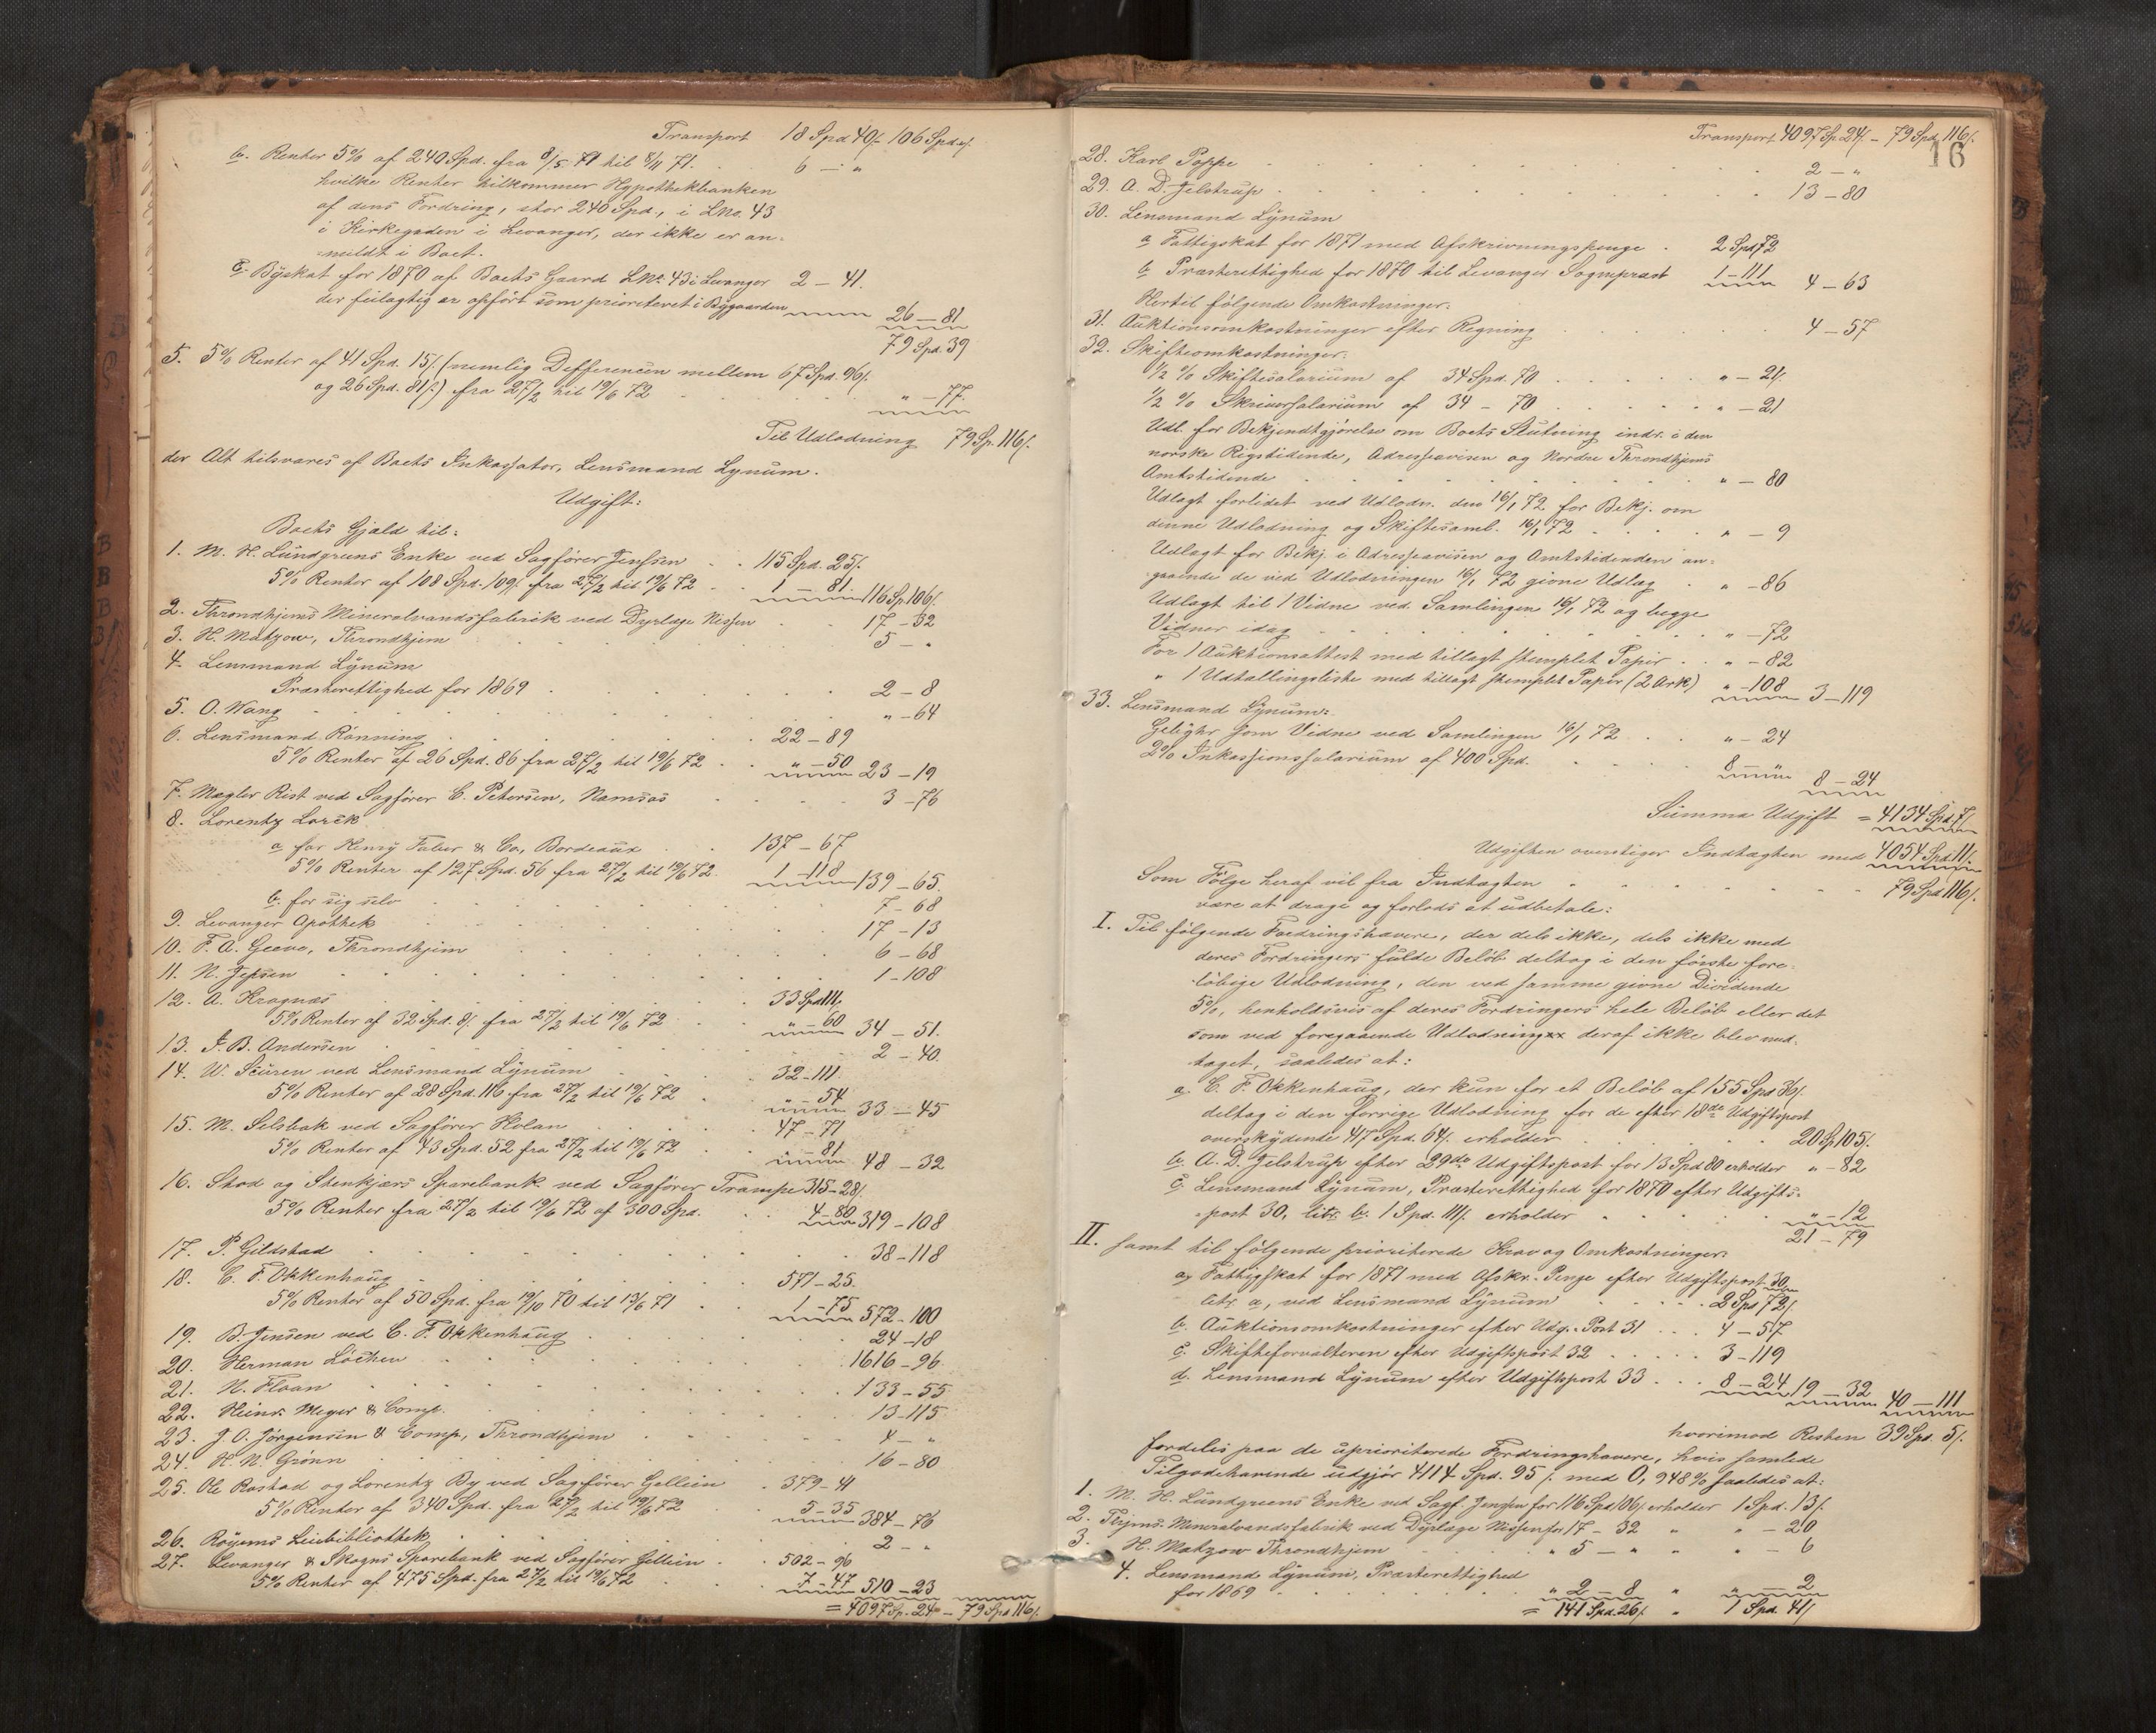 Transport 18 Spd 40/. 106 Spd "/.
b. Renter 5% af 240 Spd. fra 8/5 71 til 8/11 71. 6 — "
hvilke Renter tilkommer Hypothekbanken
af dens Fordring, stor 240 Spd., i LNo. 43
i Kirkegaden i Levanger, der ikke er an-
meldt i Boet.
c. Byskat for 1870 af Boets Gaard LNo. 43 i Levanger 2 — 41.
der feilagtig er opført som prioriteret i Bygaarden 26 — 81
79 Spd. 39
5. 5% Renter af 41 Spd. 15/. (nemlig Defferencen mellem 67 Spd. 96/.
og 26 Spd. 81/.) fra 27/2 til 19/6 72 . . " — 77.
Til Udlodning 79 Sp. 116/.
der Alt tilsvares af Boets Inkassator, Lensmand Lynum.
Udgift:
Boets Gjæld til:
1. M. H. Lundgreens Enke ved Sagfører Jenssen . . 115 Spd. 25/.
5% Renter af 108 Spd. 109/. fra 27/2 til 19/6 72 . . 1 — 81 116 Sp. 106/.
2. Throndhjems Mineralvandsfabrik ved Dyrlæge Nissen . . 17 — 32
3. H. Matzow, Throndhjem 5 — "
4. Lensmand Lynum
Præsterettighed for 1869 . . . . 2 — 8
5. O. Wang . . . . " — 64
6. Lensmand Rønning . . . . 22 — 89
5% Renter af 26 Spd. 86 fra 27/2 til 19/6 72 . . " — 50 23 — 19
7. Mægler Rist ved Sagfører C. Petersen, Namsos . . . 3 — 76
8. Lorentz Lorck
a for Henry Faber & Co, Bordeaux . . 137 — 67
5% Renter af 127 Spd. 56 fra 27/2 til 19/6 72. 1 — 118 139 — 65.
b. for sig selv . . . . 7 — 68
9. Levanger Apothek . . . . 17 — 13
10. F. A. Greve, Throndhjem . . . . 6 — 68
11. N. Jepsen . . . . 1 — 108
12. A. Kragnæs . . . . 33 Spd. 111/.
5% Renter af 32 Spd. 8/. fra 27/2 til 19/6 72 . . " — 60 34 — 51.
13. J. B. Andersen . . . . 2 — 40.
14. W. Sturen ved Lensmand Lynum . . . 32 — 111.
5% Renter af 28 Spd. 116 fra 27/2 til 19/6 72 . " — 54 33 — 45
15. M. Selsbak ved Sagfører Holan . . . 47 — 71
5% Renter af 43 Spd. 52 fra 27/2 til 19/6 72 . . " — 81 48 — 32
16. Stod og Stenkjærs Sparebank ved Sagfører Trampe 315 — 28/.
5% Renter fra 27/2 til 19/6 72 af 300 Spd. . . 4 — 80 319 — 108
17. P. Gildstad . . . . 38 — 118
18. C. F. Okkenhaug . . . . 571 — 25.
5% Renter af 50 Spd. fra 19/10 70 til 13/6 71 . . 1 — 75 572 — 100
19. B. Jensen ved C. F. Okkenhaug . . . 24 — 18
20. Herman Löchen . . . . 1616 — 96
21. N. Floan . . . . 133 — 55
22. Heinr. Meyer & Comp. . . . . 13 — 115
23. J. O. Jørgensen & Comp, Throndhjem . . . 4 — "
24. H. N. Grønn . . . . 16 — 80
25. Ole Rostad og Lorentz By ved Sagfører Gellein . 379 — 41
5% Renter af 340 Spd. fra 27/2 til 19/6 72 . . 5 — 35 384 — 76
26. Röyems Leiebibliothek . . . . 2 — "
27. Levanger & Skogns Sparebank ved Sagfører Gellein . . 502 — 96
5% Renter af 475 Spd. fra 27/2 til 19/6 72 . . 7 — 47 510 — 23
= 4097 Sp. 24 — 79 Spd 116/.
Transport 4097 Sp. 24/. — 79 Spd. 116/.
16
28. Karl Poppe . . . . 2 — "
29. A. D. Jelstrup . . . . 13 — 80
30. Lensmand Lynum
a Fattigskat for 1871 med Afskrivningspenge . 2 Spd 72
b Præsterettighed for 1870 til Levanger Sogneprest 1 — 111 4 — 63
Hertil følgende Omkostninger.
31. Auktionsomkostninger efter Regning . . . 4 — 57
32. Skifteomkostninger:
1/2 % Skiftesalarium af 34 Spd. 70 . . . " — 21.
1/2 % Skriversalarium af 34 — 70 . . . " — 21
Udl. for Bekjendtgjørelse om Boets Slutning indr. i den
norske Rigstidende, Adresseavisen og Nordre Throndhjems
Amtstidende . . . . " — 80
Udlagt forlidet ved Udlodn. den 16/1 72 for Bekj. om
denne Udlodning og Skiftesaml. 16/1 72 . . . " — 9
Udlagt for Bekj. i Adresseavisen og Amtstidenden an-
gaaende de ved Udlodningen 16/1 72 givne Udlæg . " — 86
Udlagt til 1 Vidne ved Samlingen 16/1 72 og begge
Vidner idag . . . . " — 72
For 1 Auktionsattest med tillagt stemplet Papir . . " — 82
" 1 Udtallingsliste med tillagt stemplet Papir (2 Ark) " — 108 3 — 119
33. Lensmand Lynum:
Gebyhr som Vidne ved Samlingen 16/1 72 . . " — 24
2% Inkassionssalarium af 400 Spd. . . . 8 — " 8 — 24
Summa Udgift = 4134 Spd. 7/.
Udgiften overstiger Indtægten med 4054 Spd 11/.
Som Følge heraf vil fra Indtægten . . . 79 Spd 116/.
være at drage og forlods at udbetale:
I. Til følgende Fordringshavere, der dels ikke, dels ikke med
deres Fordringers fulde Beløb deltog i den første fore-
løbige Udlodning, den ved samme givne Dividende
5%, henholdsvis af deres Fordringers hele Beløb eller det
som ved foregaaende Udlodning deraf ikke blev med-
taget, saaledes at:
a C. F. Okkenhaug, der kun for et Beløb af 155 Spd 36/.
deltog i den forrige Udlodning for de efter 18de Udgiftspost
overskydende 417 Spd. 64/. erholder . . . 20 Sp 105/.
b. A. D. Jelstrup efter 29de Udgiftspost for 13 Spd 80 erholder " — 82
c. Lensmand Lynum, Præsterettighed for 1870 efter Udgifts-
post 30, litr. b. 1 Spd. 111/. erholder . . " — 12
21 — 79
II. samt til følgende prioriterede Krav og Omkostninger:
a, Fattigskat for 1871 med Afskr.-Penge efter Udgiftspost 30
litr. a, ved Lensmand Lynum . . . 2 Spd 72/.
b. Auktionsomkostninger efter Udg.-Post 31 . . . 4 — 57
c. Skifteforvalteren efter Udgiftspost 32 . . . 3 — 119
d. Lensmand Lynum efter Udgiftspost 33 . . . 8 — 24 19 — 32 40 — 111
hvorimod Resten 39 Spd. 5/.
fordeles paa de uprioriterede Fordringshavere, hvis samlede
Tilgodehavende udgjør 4114 Spd. 95/. med 0,948% saaledes at:
1. M. H. Lundgreens Enke ved Sagf. Jenssen for 116 Spd 106/. erholder 1 Spd. 13/.
2. Thjems Mineralvandsfabrik ved Dyrlæge Nissen for 17 — 32 " " — 20
3. H. Matzow Throndhjem " 5 — " " " — 6
4. Lensmand Lynum, Præsterettighed
for 1869 . . . " 2 — 8 " " — 2
= 141 Spd. 26/. " 1 Spd. 41/.